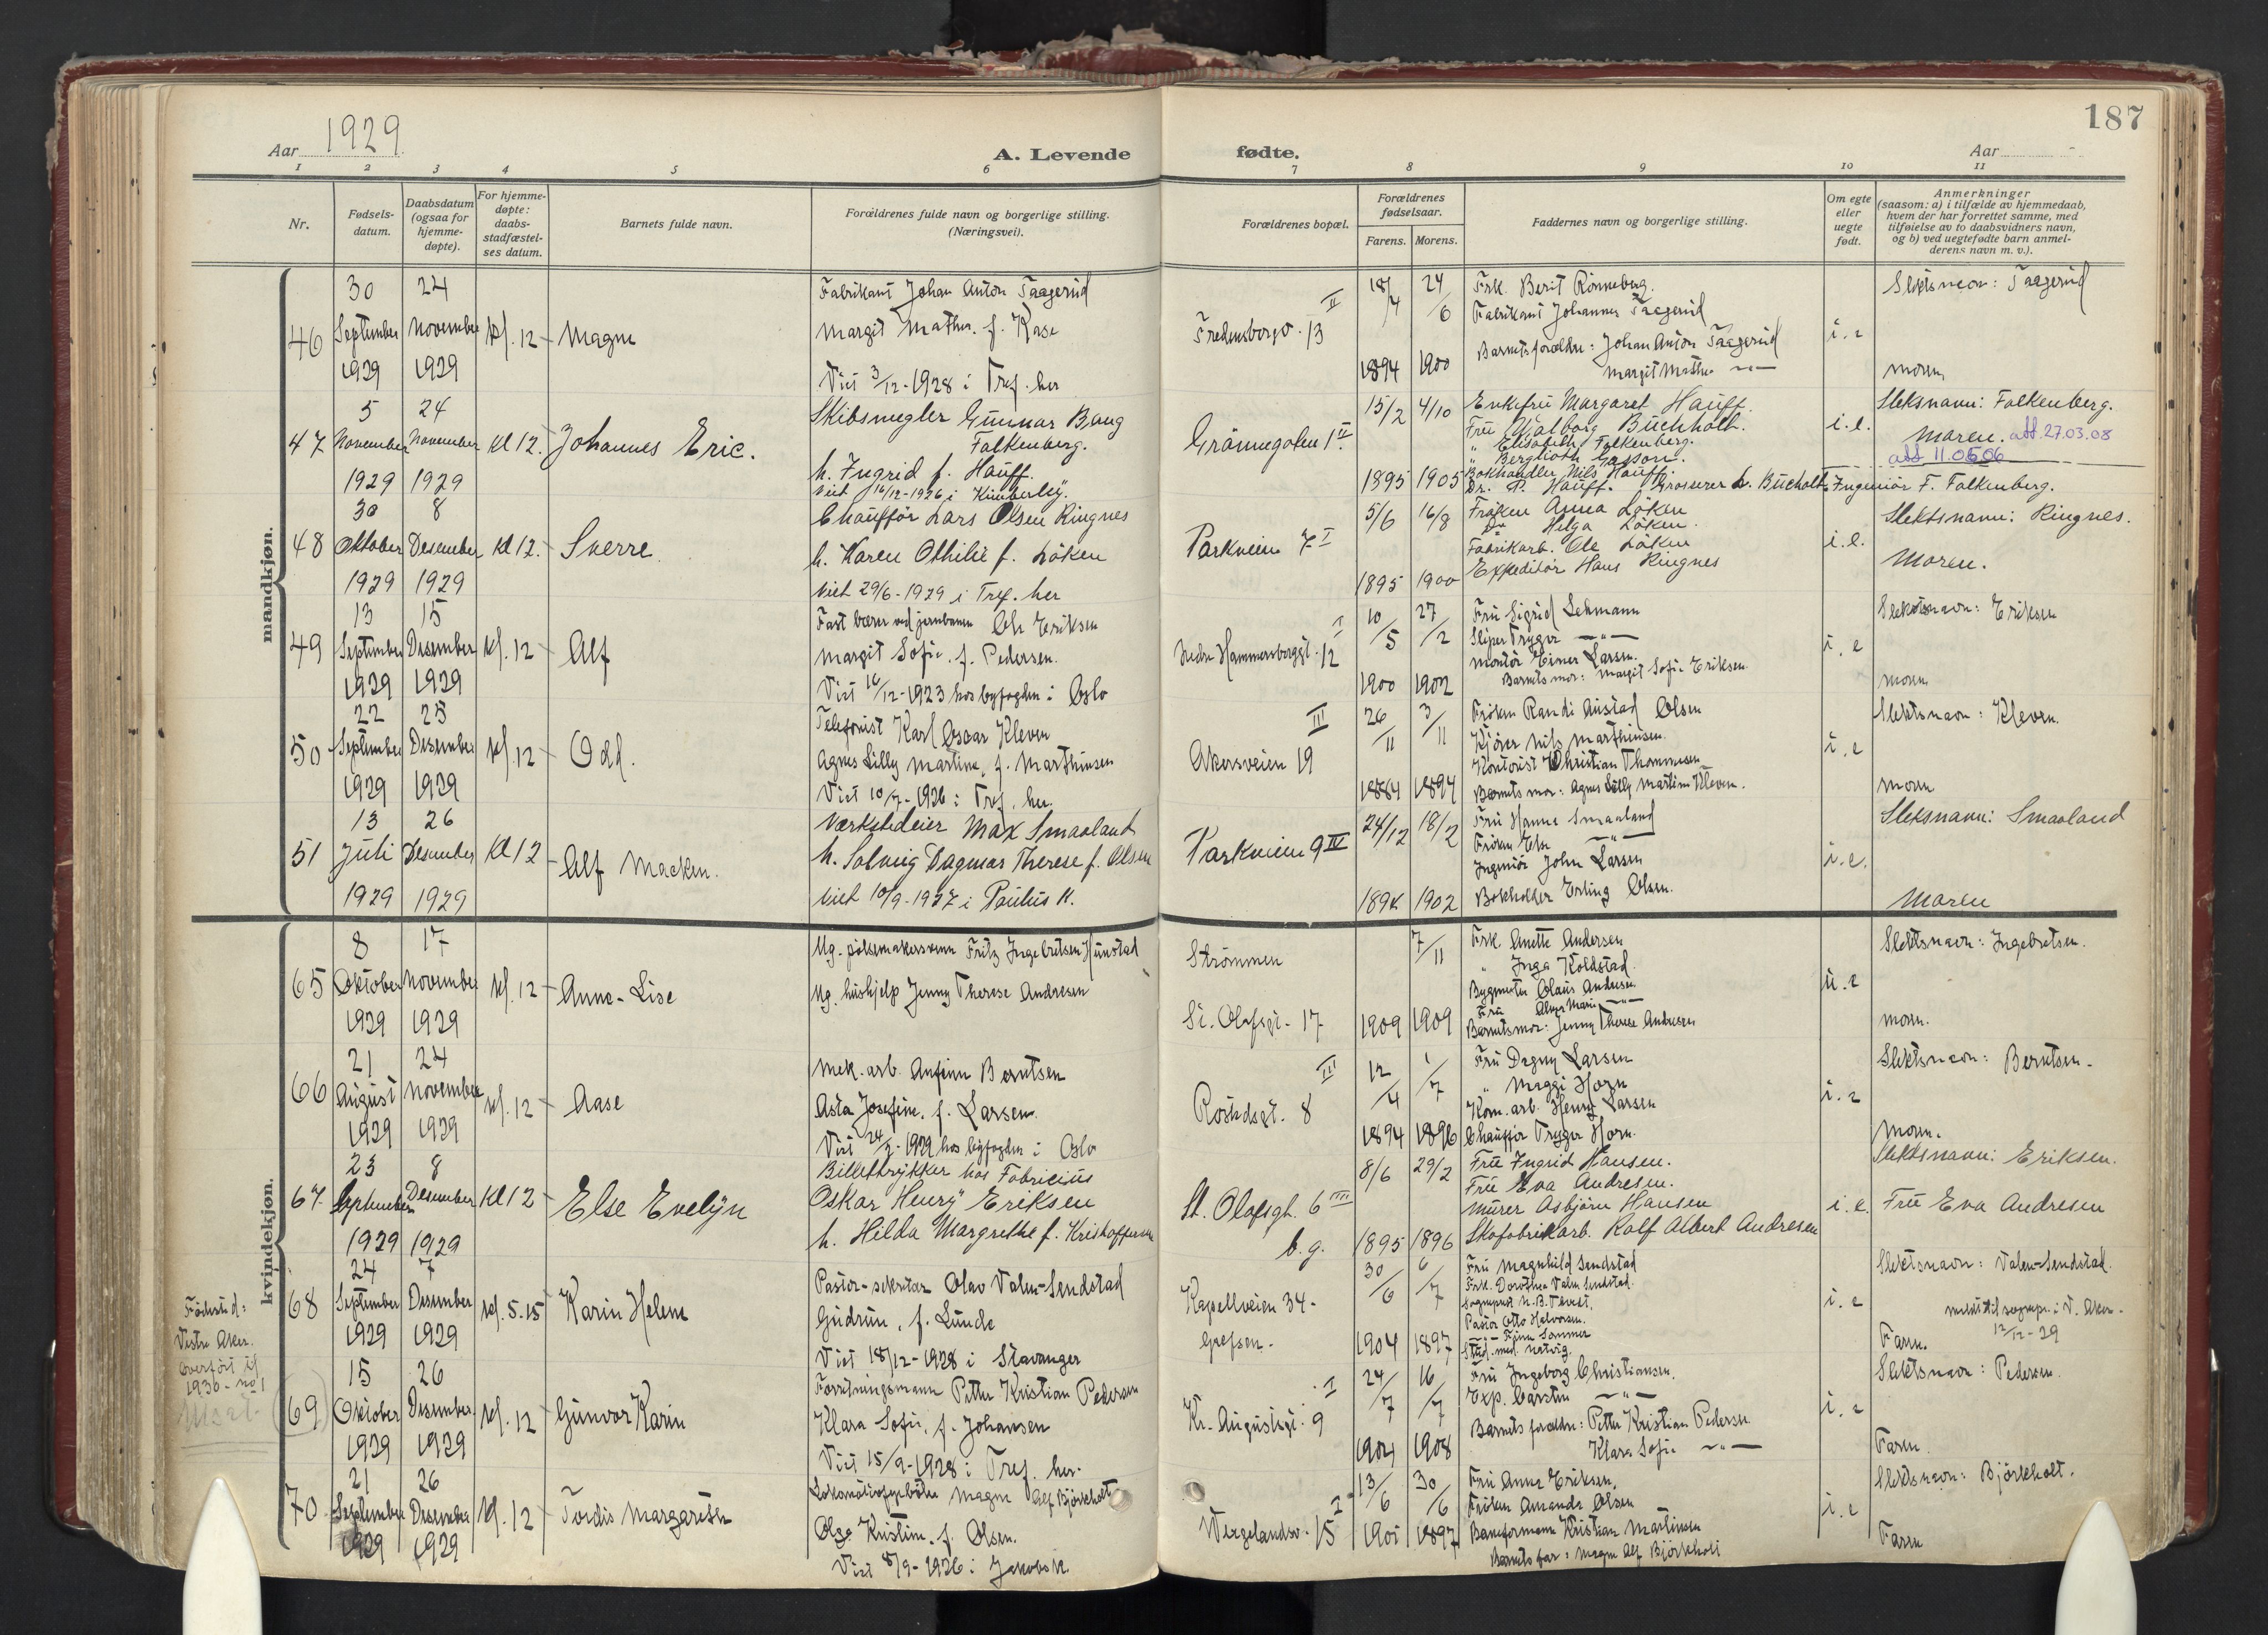 187
Aar 1929
A. Levende fødte.
Aar
1 2 3 4 5 6 7 8 9 10 11
Nr.
Fødsels-
datum.
Daabsdatum
(ogsaa for
hjemme-
døpte).
For hjemme-
døpte:
daabs-
stadfæstel-
ses datum.
Barnets fulde navn.
Forældrenes fulde navn og borgerlige stilling.
(Næringsvei).
Forældrenes bopæl.
Forældrenes
fødselsaar.
Farens. Morens.
Faddernes navn og borgerlige stilling.
Om egte
eller
uegte
født.
Anmerkninger
(saasom: a) i tilfælde av hjemmedaab,
hvem der har forrettet samme, med
tilføielse av to daabsvidners navn,
og b) ved uegtefødte barn anmel-
derens navn m. v.).
mandkjøn.
46
30
September
1929
24
November
1929
Kl. 12
Magne
Fabrikant Johan Anton Taagerud
Margit Mathea f. Kase
Viet 3/12-1928 i Tref. her
Fredensborgv. 13 II
18/4
1894
24/6
1900
Frk. Berit Rönneberg.
Fabrikant Johannes Taagerud
Barnets forældre: Johan Anton Taagerud
Margit Mathea —"—
i. e
Slektsnavn: Taagerud
moren
47
5
November
1929
24
November
1929
Kl 12.
Johannes Eric.
Skibsmegler Gunnar Bang
Falkenberg.
h. Ingrid f. Hauff.
viet 16/12-1926 i Kimberley.
Grönnegaten 1 II
15/2
1895
4/10
1905
Enkefru Margaret Hauff.
Fru Valborg Buchholt.
" Elisabeth Falkenberg.
" Berglioth
Bokhandler Nils Hauff.
Dr. P. Hauff. Grosserer L. Bucholt. Ingeniör F. Falkenberg.
i. e.
Sleksnavn: Falkenberg.
moren. att. 27.03.08
att 11.0606
48
30
Oktober
1929
8
Desember
1929
Kl 12.
Sverre.
Chaufför Lars Olsen Ringnes
h. Karen Othilie f. Löken
viet 29/6-1929 i Tref. her
Parkveien 7 I
5/6
1895
16/8
1900
Fröken Anna Löken
Do Helga Löken.
Fabrikarb. Ole Löken
Expeditör Hans Ringnes
i. e.
Slektsnavn: Ringnes.
Moren.
49
13
September
1929
15
Desember
1929
Kl. 12
Alf
Fast bærer ved jernbanen Ole Eriksen
Margit Sofie f. Pedersen.
Viet 16/12-1923 hos byfogden i Oslo
Nedre Hammersborggt. 12 I
10/5
1900
27/2
1902
Fru Sigrid Lehmann
Sliper Trygve —"—
Montör Einar Larsen.
Barnets mor: Margit Sofie Eriksen.
i. e
Slektsnavn: Eriksen
moren
50
22
September
1929
25
Desember
1929
Kl. 12
Odd.
Telefonist Karl Oscar Kleven
Agnes Lilly Martine, f. Marthinsen
Viet 10/7-1926 i Tref. her.
Akersveien 19 III
26/11
1884
3/11
1894
Fröken Randi Austad Olsen
Kjörer Nils Marthinsen.
Kontorist Christian Thommesen
Barnets mor: Agnes Lilly Martine Kleven.
i. e
Slektsnavn: Kleven.
moren
51
13
Juli
1929
26
Desember
1929
Kl 12
Alf Macken.
Værkstedeier Max Smaaland
h. Solveig Dagmar Therese f. Olsen
viet 10/9-1927 i Paulus K.
Parkveien 9 IV
24/12
1894
18/2
1902
Fru Hanna Smaaland
Fröken Else —"—
Ingeniör John Larsen
Bokholder Erling Olsen.
i. e.
Sleksnavn: Smaaland
Moren
kvindekjøn.
65
8
Oktober
1929
17
November
1929
Kl. 12
Anne-Lise
Ug. pölsemakersvenn Fritz Ingebretsen Hunstad
Ug. hushjelp Jenny Therese Andresen
Strömmen
St. Olafsgt. 17
1909
7/11
1909
Frk. Anette Andersen
" Inga Koldstad.
Bygmester Olaus Andresen
Fru Marie —"—
Barnets mor: Jenny Therese Andresen
u. e
Slektsnavn: Ingebretsen.
moren.
66
21
August
1929
24
November
1929
Kl. 12
Aase
Mek. arb. Anfinn Berntsen
Asta Josefine, f. Larsen.
Viet 24/7-1929 hos byfogden i Oslo
Rostedsgt. 8 III
12/4
1894
1/7
1896
Fru Dagny Larsen
" Maggi Horn
Kom. arb. Henry Larsen
Chaufför Trygve Horn.
i. e
Slektsnavn: Berntsen.
Moren.
67.
23
September
1929
8
Desember
1929
Kl 12
Else Evelyn
Billettrykker hos Fabricius
Oskar Henry Eriksen
h. Hilda Margrethe f. Kristoffersen
St. Olafsgt. 6 III
b. g.
8/6
1895
29/2
1896
Fru Ingrid Hansen.
Fru Eva Andresen.
Murer Asbjörn Hansen
Skofabrikarb. Rolf Albert Andresen
i. e.
Slektsnavn: Eriksen.
Fru Eva Andresen
Födested:
Vestre Aker.
Overfört til
1930 - no 1
68
24
September
1929
7
Desember
1929
Kl. 5.15
Karin Helene
Pastor-sekretær Olav Valen-Sendstad
Gudrun, f. Lunde
Viet 18/12-1928 i Stavanger
Kapellveien 34-
Grefsen.
30/6
1904
6/7
1897
Fru Magnhild Sendstad
Frk. Dorothea Valen Sendstad.
Sogneprest N. B. Tvedt.
Pastor Otto Halvorsen.
—"— Finn Sommer
Stud. med. Natvig.
i. e
Slektsnavn: Valen-Sendstad.
meldt til sognepr. i V. Aker.
12/12-29
Faren.
69
15
Oktober
1929
26
Desember
1929
Kl. 12
Gunvor Karin
Forretningsmann Petter Kristian Pedersen
Klara Sofie, f. Johansen
Viet 15/9-1928 i Tref. her.
Kr. Augustsgt. 9 I
24/7
1904
16/7
1908
Fru Ingeborg Christiansen.
Exp. Carsten —"—
Barnets forældre: Petter Kristian Pedersen
Klara Sofie —"—
i. e
Slektsnavn: Pedersen.
Faren.
70
21
September
1929
26
Desember
1929
Kl. 12
Tordis Margarethe
Lokomotivfyrböter Magne Alf Björkholt
Olga Kristine, f. Olsen.
Viet 8/9-1926 i Jakobs k.
Vergelandsv. 15 I
13/6
1901
30/6
1897
Fru Anna Eriksen.
Fröken Amanda Olsen
Baneformann Kristian Martinsen
Barnets far: Magne Alf Björkholt
i. e
Slektsnavn: Björkholt.
Faren